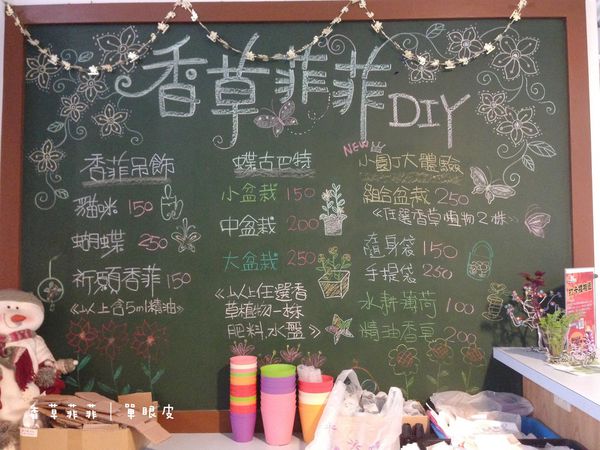 香草菲菲DIY
香菲吊飾
貓咪 150
蝴蝶 250
祈願香菲 150
《以上含5ml精油》
蝶古巴特
小盆栽 150
中盆栽 200
大盆栽 250
《以上任選香
草植物一株
肥料,水盤》
NEW
小園丁大體驗
組合盆栽 250
《任選香草植物2株》
隨身袋 150
手提袋 250
水耕薄荷 100
精油香皂 200
香草菲菲 | 單眼皮